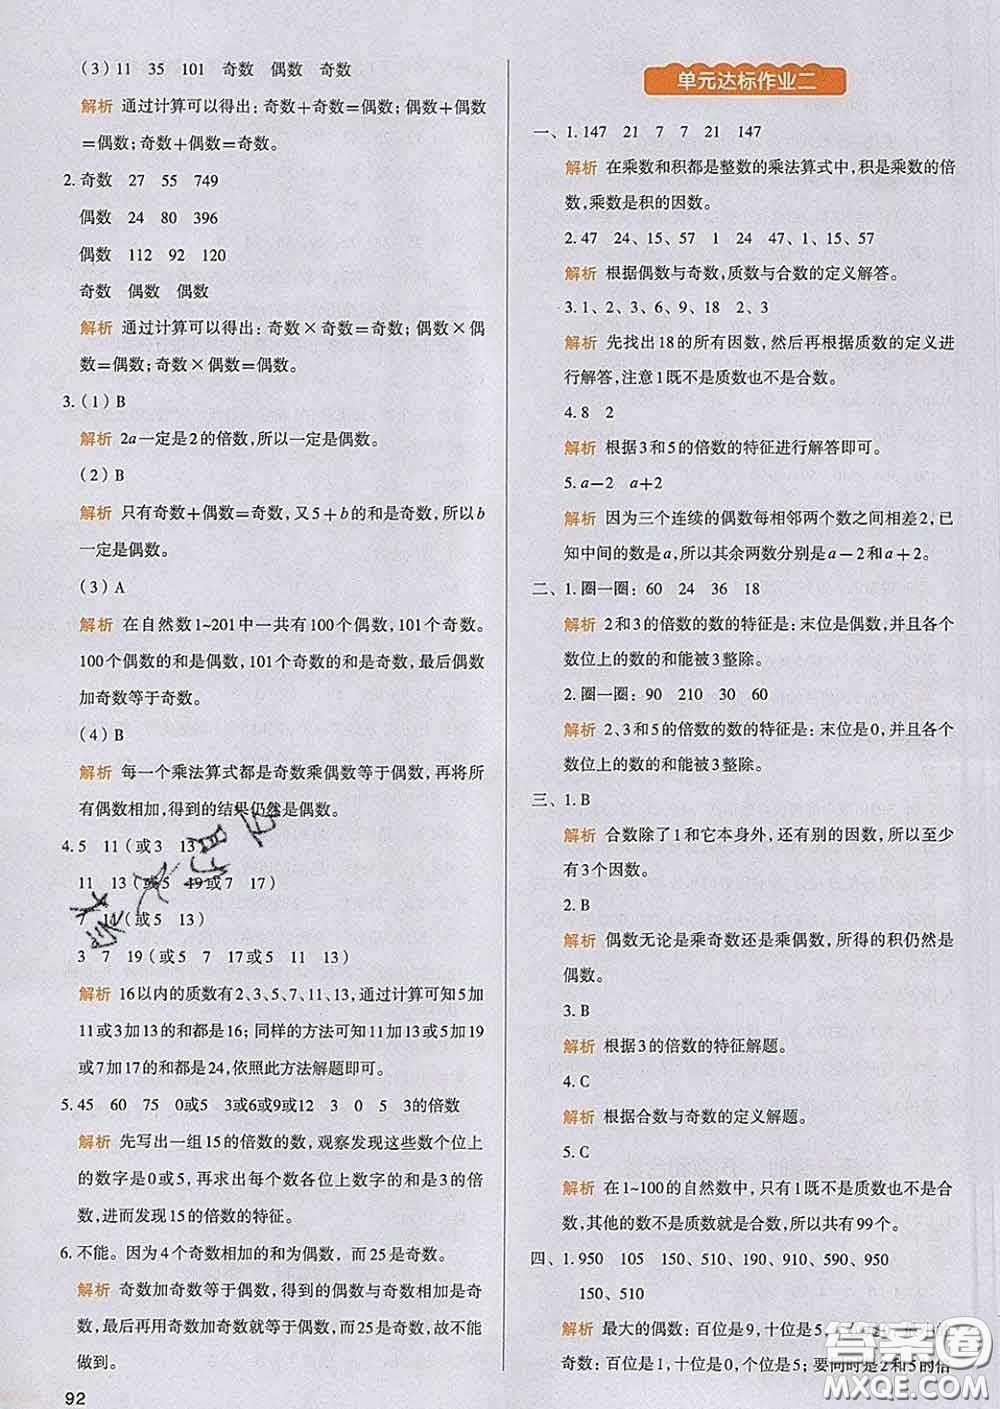 (3)11 35 101 奇数 偶数 奇数
解析 通过计算可以得出:奇数+奇数=偶数;偶数+偶数
=偶数;奇数+偶数=奇数。
2. 奇数 27 55 749
偶数 24 80 396
偶数 112 92 120
奇数 偶数 偶数
解析 通过计算可以得出:奇数×奇数=奇数;偶数×偶
数=偶数;奇数×偶数=偶数。
3.(1)B
解析 2a一定是2的倍数,所以一定是偶数。
(2)B
解析 只有奇数+偶数=奇数,又5+b的和是奇数,所以b
一定是偶数。
(3)A
解析 在自然数1~201中一共有100个偶数,101个奇数。
100个偶数的和是偶数,101个奇数的和是奇数,最后偶数
加奇数等于奇数。
(4)B
解析 每一个乘法算式都是奇数乘偶数等于偶数,再将所
有偶数相加,得到的结果仍然是偶数。
4.5 11(或3 13)
11 13(或5 19或7 17)
7 11(或5 13)
3 7 19(或5 7 17或5 11 13)
解析 16以内的质数有2、3、5、7、11、13,通过计算可知5加
11或3加13的和都是16;同样的方法可知11加13或5加19
或7加17的和都是24,依照此方法解题即可。
5.45 60 75 0或5 3或6或9或12 3 0 5 3的倍数
解析 先写出一组15的倍数的数,观察发现这些数个位上
的数字是0或5,再求出每个数各位上的数字的和是3的倍
数,进而发现15的倍数的特征。
6. 不能。因为4个奇数相加的和为偶数，而25是奇数。
解析 奇数加奇数等于偶数,得到的偶数与奇数相加是奇
数,最后再用奇数加奇数就等于偶数,而25是奇数,故不能
做到。
92
单元达标作业二
一、1.147 21 7 7 21 147
解析 在乘数和积都是整数的乘法算式中,积是乘数的倍
数,乘数是积的因数。
2. 47 24、15、57 1 24 47、1、15、57
解析 根据偶数与奇数,质数与合数的定义解答。
3.1、2、3、6、9、18 2、3
解析 先找出18的所有因数,然后再根据质数的定义进
行解答,注意1既不是质数也不是合数。
4.8 2
解析 根据3和5的倍数的特征进行解答即可。
5. a−2 a+2
解析 因为三个连续的偶数每相邻两个数之间相差2,已
知中间的数是a,所以其余两数分别是a−2和a+2。
二、1. 圈一圈:60 24 36 18
解析 2和3的倍数的数的特征是:末位是偶数,并且各个
数位上的数的和能被3整除。
2. 圈一圈:90 210 30 60
解析 2、3和5的倍数的数的特征是:末位是0,并且各个
数位上的数的和能被3整除。
三、1. B
解析 合数除了1和它本身外,还有别的因数,所以至少
有3个因数。
2. B
解析 偶数无论是乘奇数还是乘偶数,所得的积仍然是
偶数。
3. B
解析 根据3的倍数的特征解题。
4. C
解析 根据合数与奇数的定义解题。
5. C
解析 在1~100的自然数中,只有1既不是质数也不是合
数,其他的数不是质数就是合数,所以共有99个。
四、1. 950 105 150、510、190、910、590、950
150、510
解析 最大的偶数:百位是9,十位是5,
奇数:百位是1,十位是0,个位是5;要同时是2和5的倍
答案圈
MXQE.COM